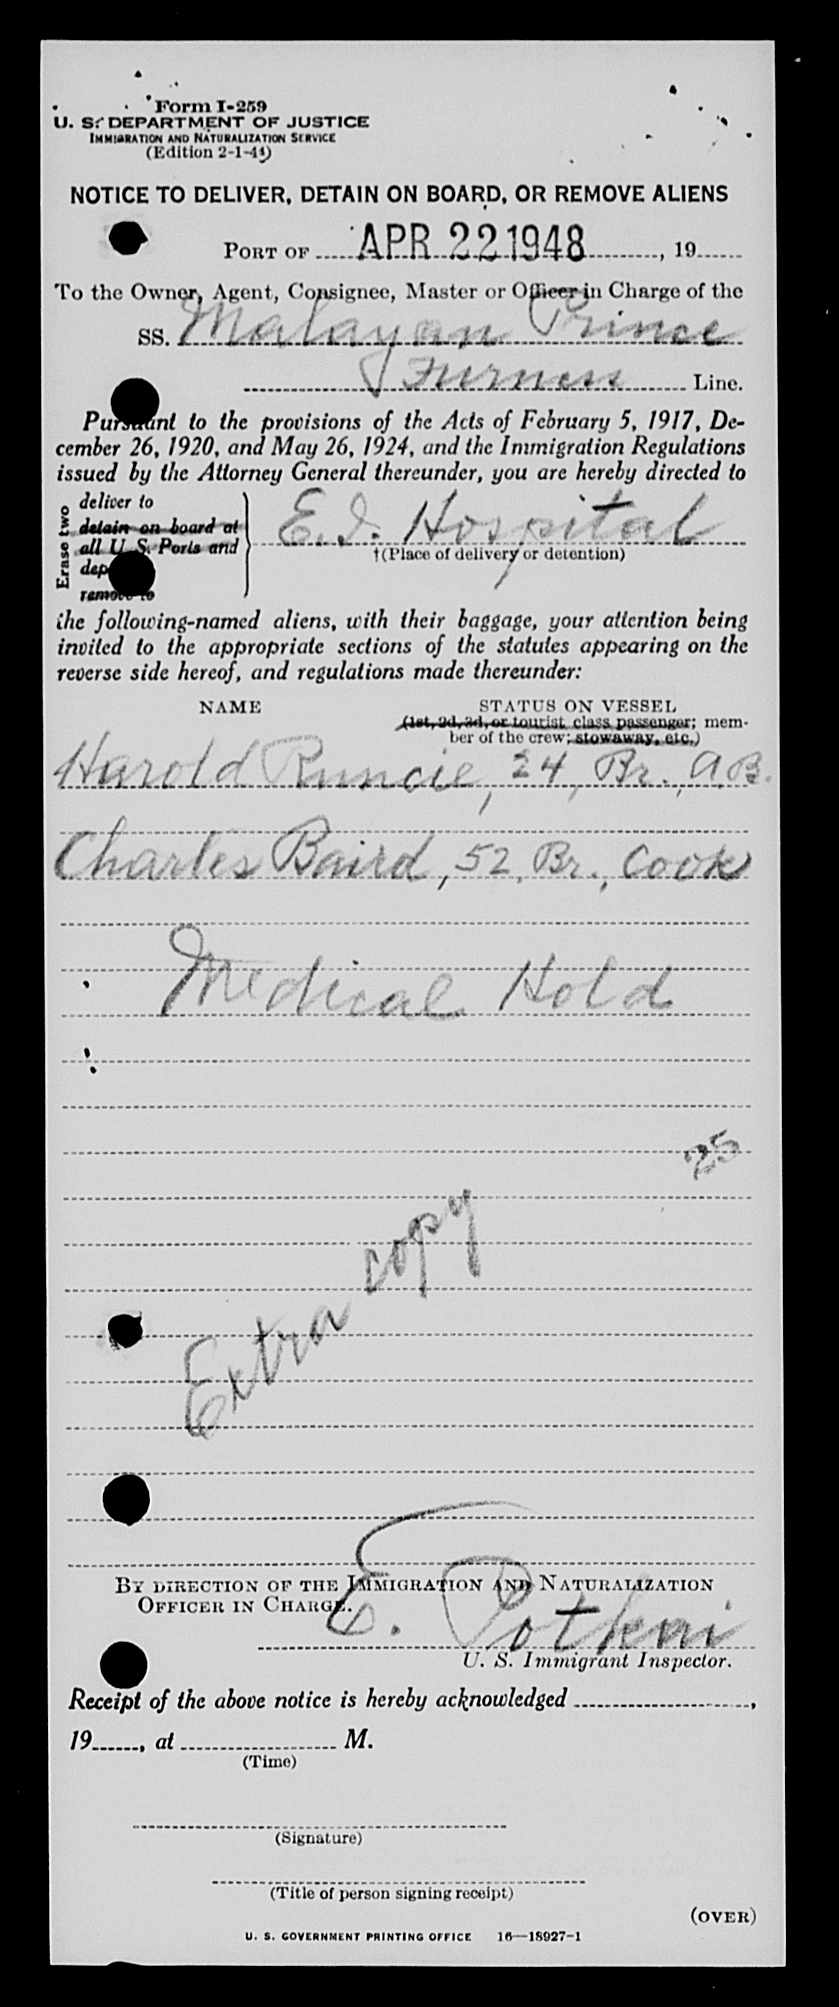 Form I-259
U. S. DEPARTMENT OF JUSTICE
IMMIGRATION AND NATURALIZATION SERVICE
(Edition 2-1-44)
NOTICE TO DELIVER, DETAIN ON BOARD, OR REMOVE ALIENS
PORT OF APR 22 1948, 19
To the Owner, Agent, Consignee, Master or Officer in Charge of the
SS. Malayan Prince
Furness Line.
Pursuant to the provisions of the Acts of February 5, 1917, De-
cember 26, 1920, and May 26, 1924, and the Immigration Regulations
issued by the Attorney General thereunder, you are hereby directed to
Erase two
deliver to
detain on board at
all U. S. Ports and
dep
remove to
E. I. Hospital
†(Place of delivery or detention)
the following-named aliens, with their baggage, your attention being
invited to the appropriate sections of the statutes appearing on the
reverse side hereof, and regulations made thereunder:
NAME STATUS ON VESSEL
(1st, 2d, 3d, or tourist class passenger; mem-
ber of the crew; stowaway, etc.)
Harold Runcie, 24, Br., A.B.
Charles Baird, 52, Br., Cook
Medical Hold
25
Extra copy
BY DIRECTION OF THE IMMIGRATION AND NATURALIZATION
OFFICER IN CHARGE.
E.
U. S. Immigrant Inspector.
Receipt of the above notice is hereby acknowledged ,
19 , at M.
(Time)
(Signature)
(Title of person signing receipt)
(OVER)
U. S. GOVERNMENT PRINTING OFFICE 16—18927-1